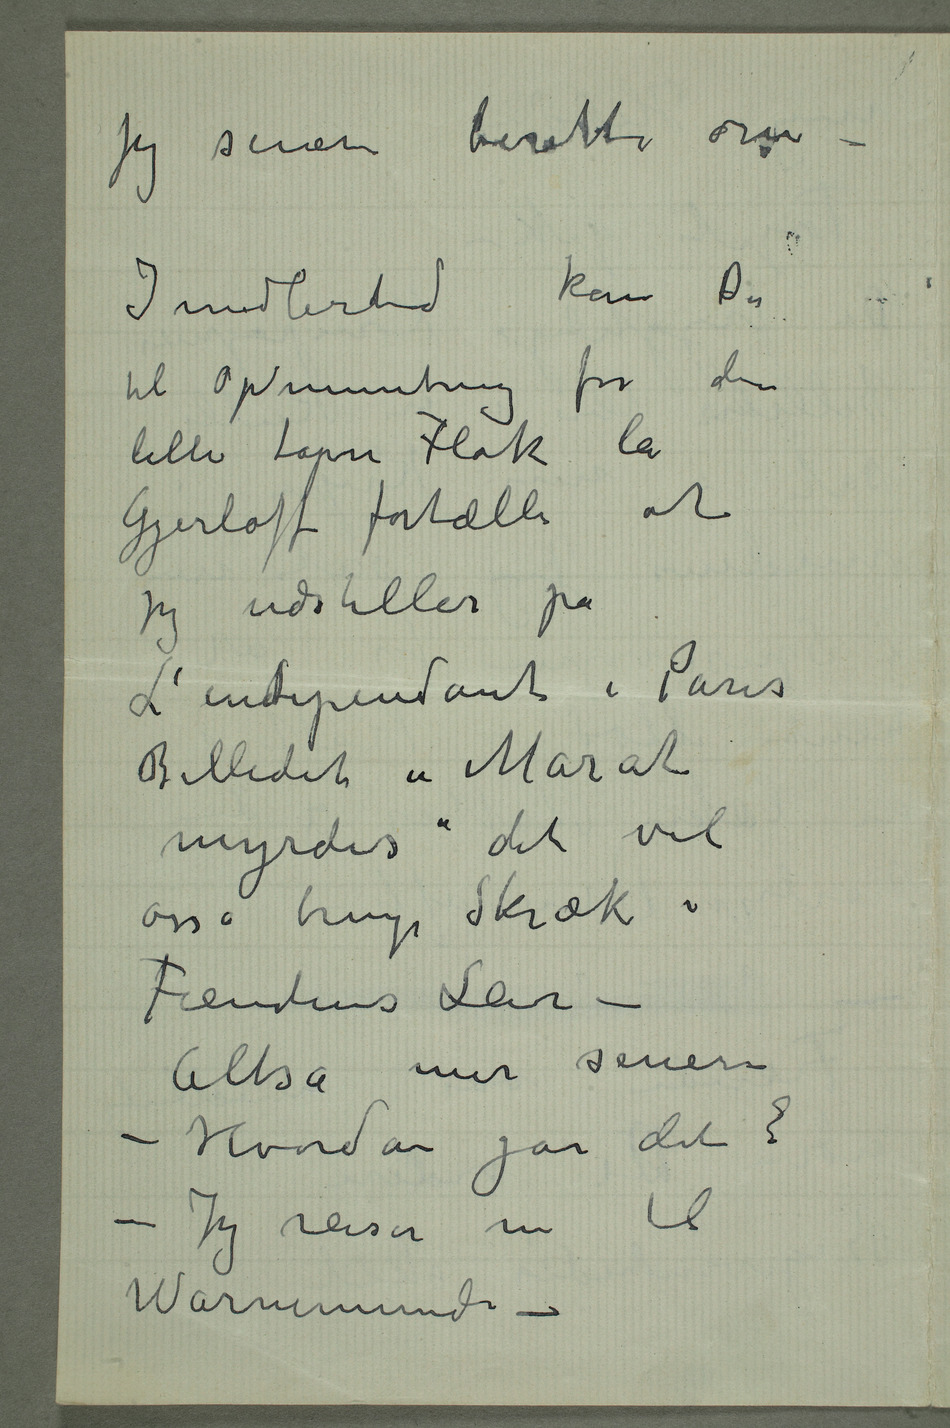 jeg senere berette om –
Imidlertid kan Du
til Opmuntring for den
lille tapre Flok la
Gjerløff fortælle at
jeg udstiller på
L'independant i Paris
Billedet „Marat
myrdes“ det vil
osså bringe Skræk i
Fiendens Leir –
Altså mer senere
– Hvordan går det?
– Jeg reiser nu til
Warnemünde –